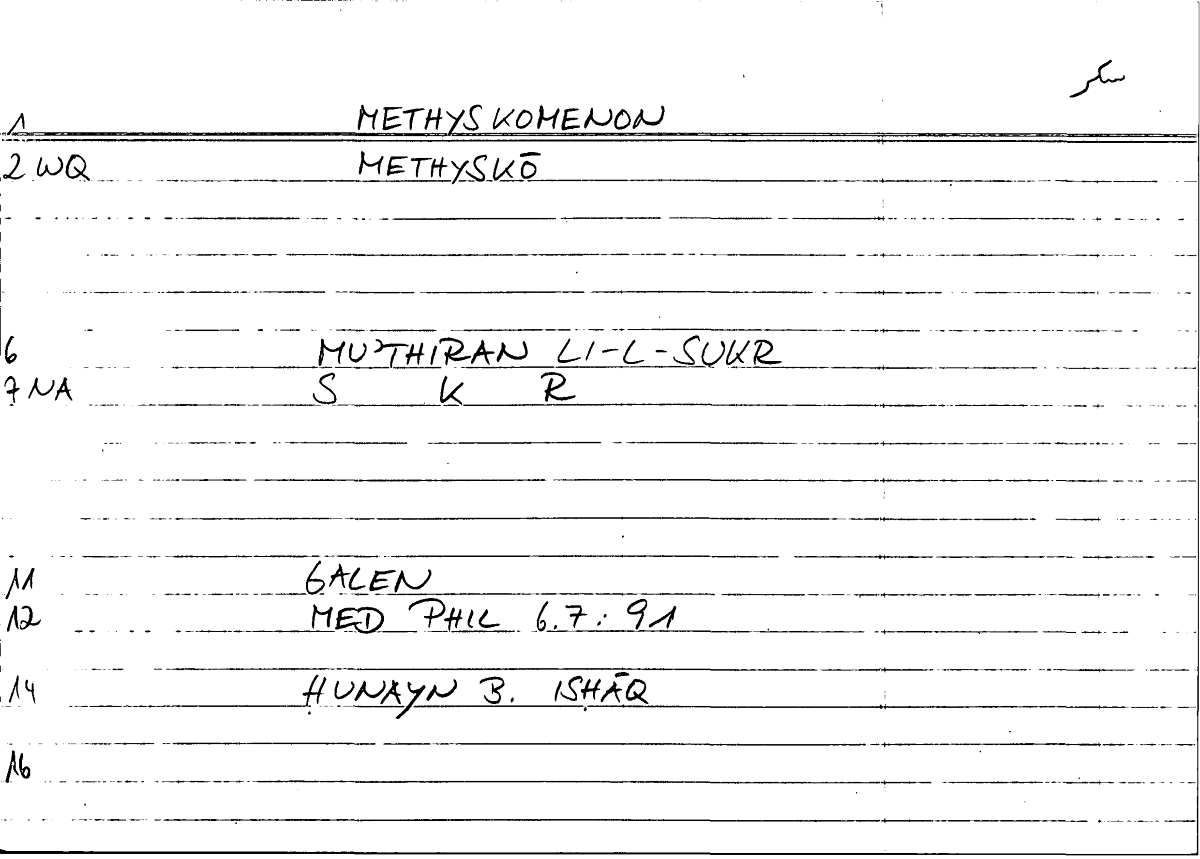 سكر
1 METHYSKOMENON
2 WQ METHYSKŌ
6 MUʾTHIRAN LI-L-SUKR
7 NA S K R
11 GALEN
12 MED PHIL 6.7: 91
14 ḤUNAYN B. ISḤĀQ
16